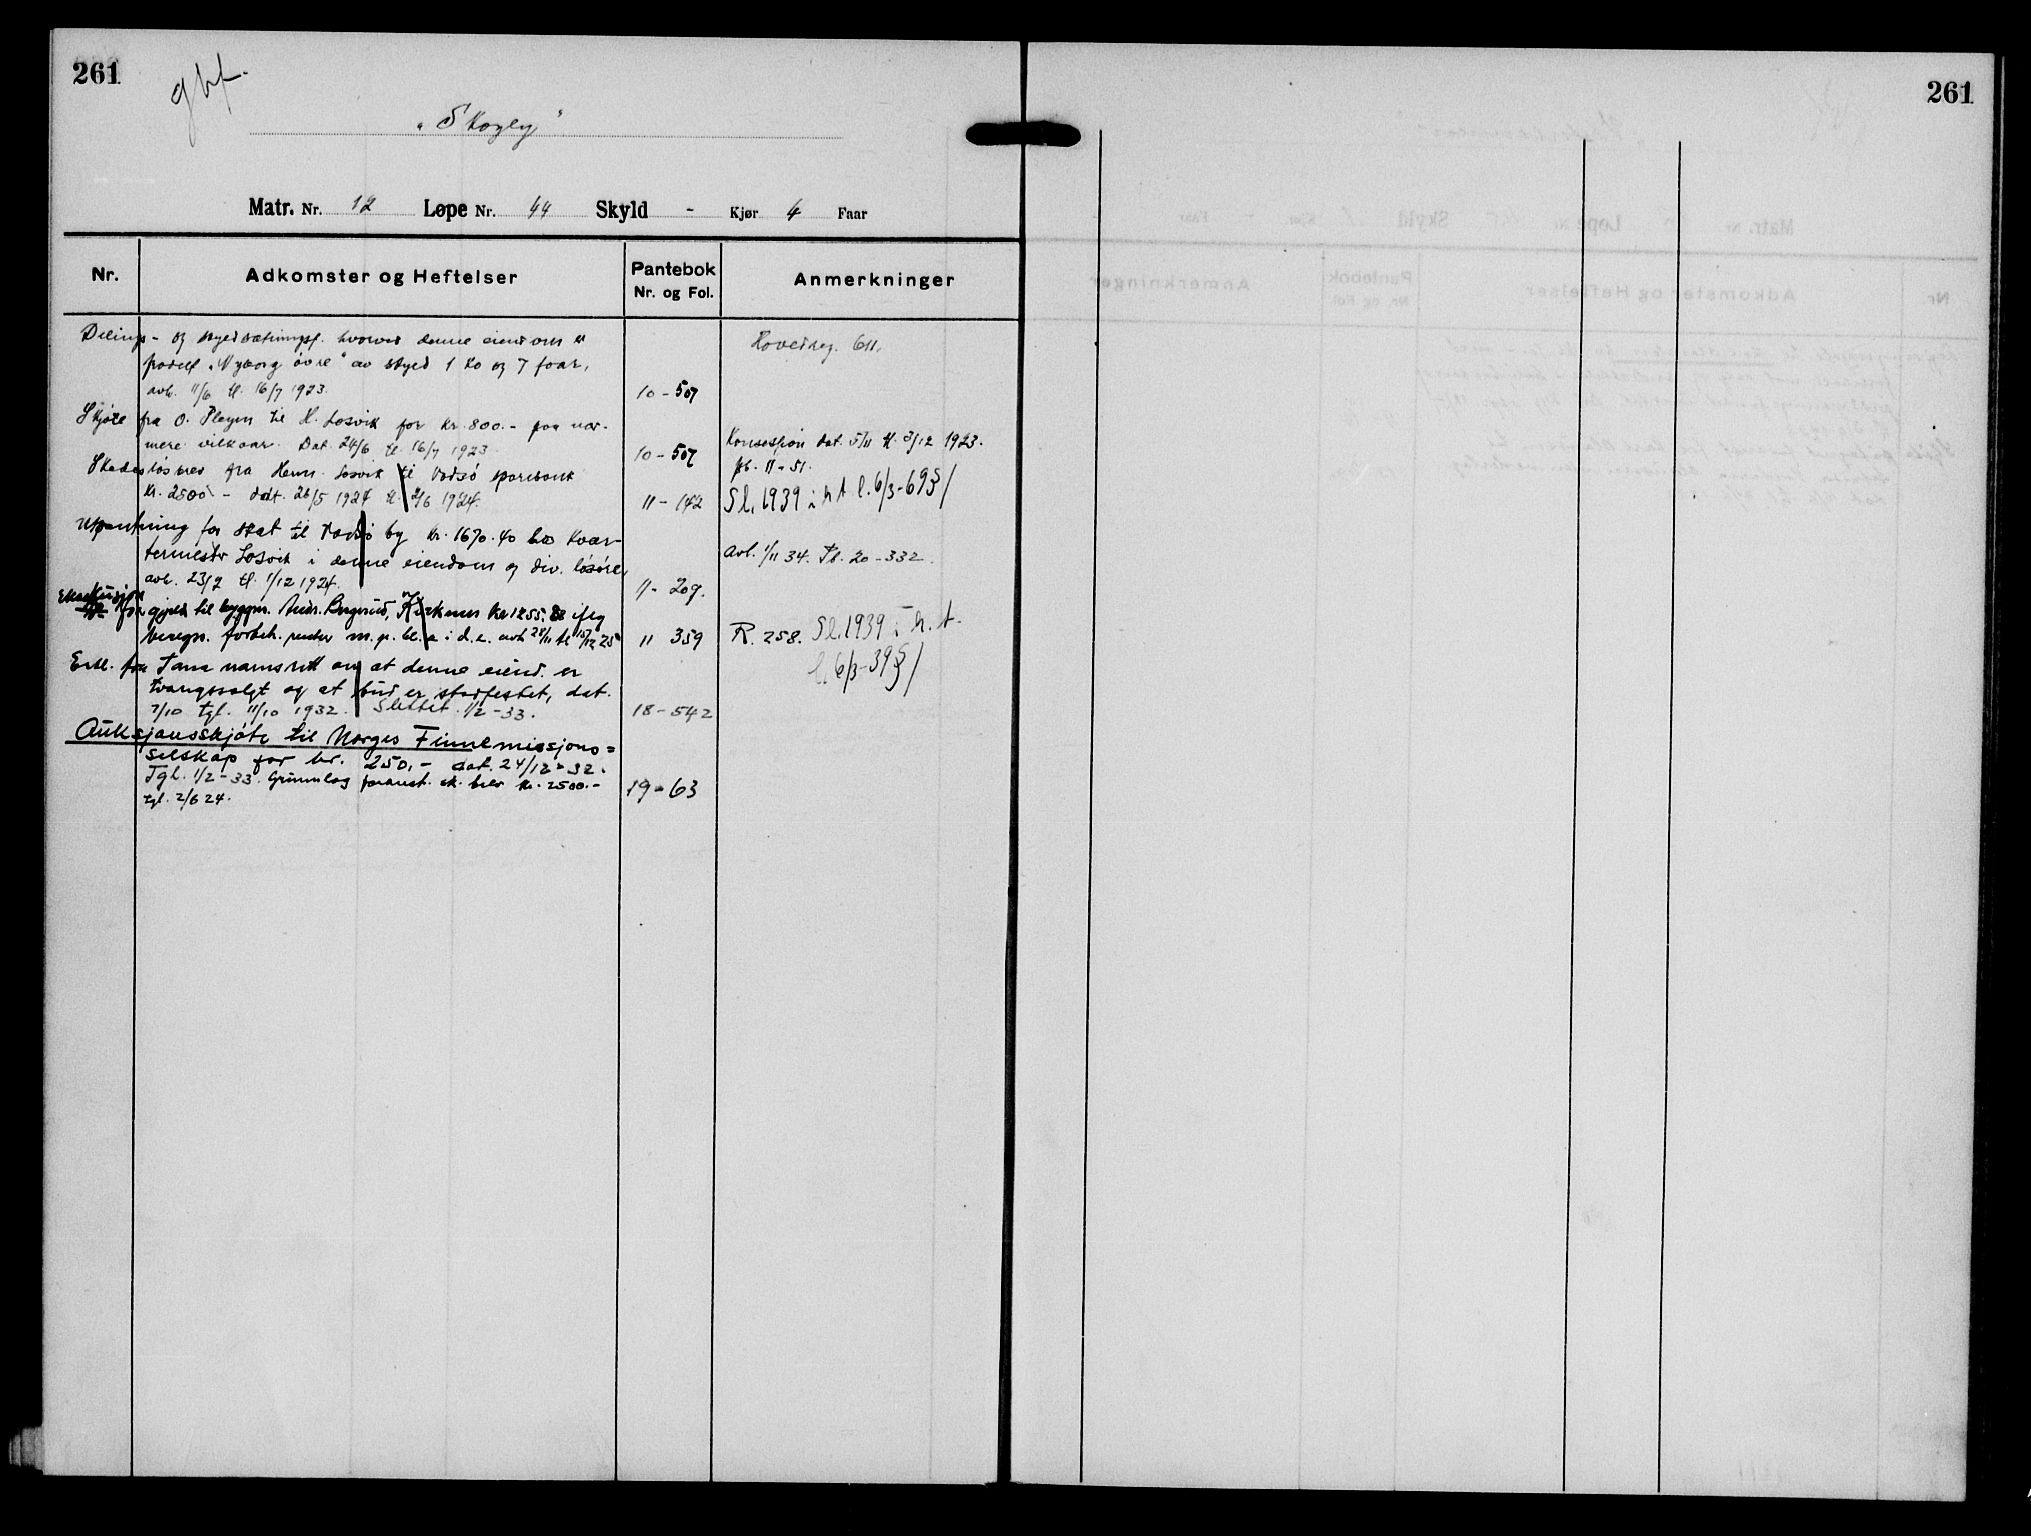 261
261
ghf.
"Skogly"
Matr. Nr. 12 Løpe Nr. 44 Skyld - Kjør 4 Faar
Nr. Adkomster og Heftelser Pantebok Nr. og Fol. Anmerkninger
Delings- og skyldsætningsf. hvorved denne eiendom er Hovedreg. 611.
"Nyborg øvre" av skyld 1 ko og 7 faar,
avh. 11/6 tl. 16/7 1923. 10-507
Skjøte fra O. Pleym til H. Losvik for kr. 800.- paa nær-
mere vilkaar. Dat. 24/6 tl. 16/7 1923. 10-507 Konsesjon dat. 5/11 tl. 3/12 1923.
pb. 11-51.
Skadesløsbrev fra Henr. Losvik til Vadsø sparebank
kr. 2500.- dat. 26/5 1924 tl. 2/6 1924. 11-142 Sl. 1939 i h.t. l. 6/3-69§/
Utpantning for skat til Vadsø by kr. 1670.40 hos kvar-
termester Losvik i denne eiendom og div. løsøre, Avl. 1/11 34. Pb. 20-332.
avh. 23/9 tl. 1/12 1924. 11-209.
Eksekusjon for gjeld til byggm. Andr. Bergerud, Kirkenes kr 1255.88 ifløg
beregn. forbeh. renter m.p. bl.a. i d.e. avh 28/11 tl 15/12 25 11 359 R. 258. Sl. 1939 i h.t.
l. 6/3-39§/
Erkl. fra Tana namsrett om at denne eiend. er
tvangssolgt og at bud er stadfestet, dat.
7/10 tgl. 11/10 1932. Slettet 1/2-33. 18-542
Auksjonsskjøte til Norges Finnemissjons=
selskap for kr. 250,- dat. 24/12-32.
Tgl. 1/2-33. Grunnlag foranst. sk. brev kr. 2500.- 19-63
tgl. 2/6 24.